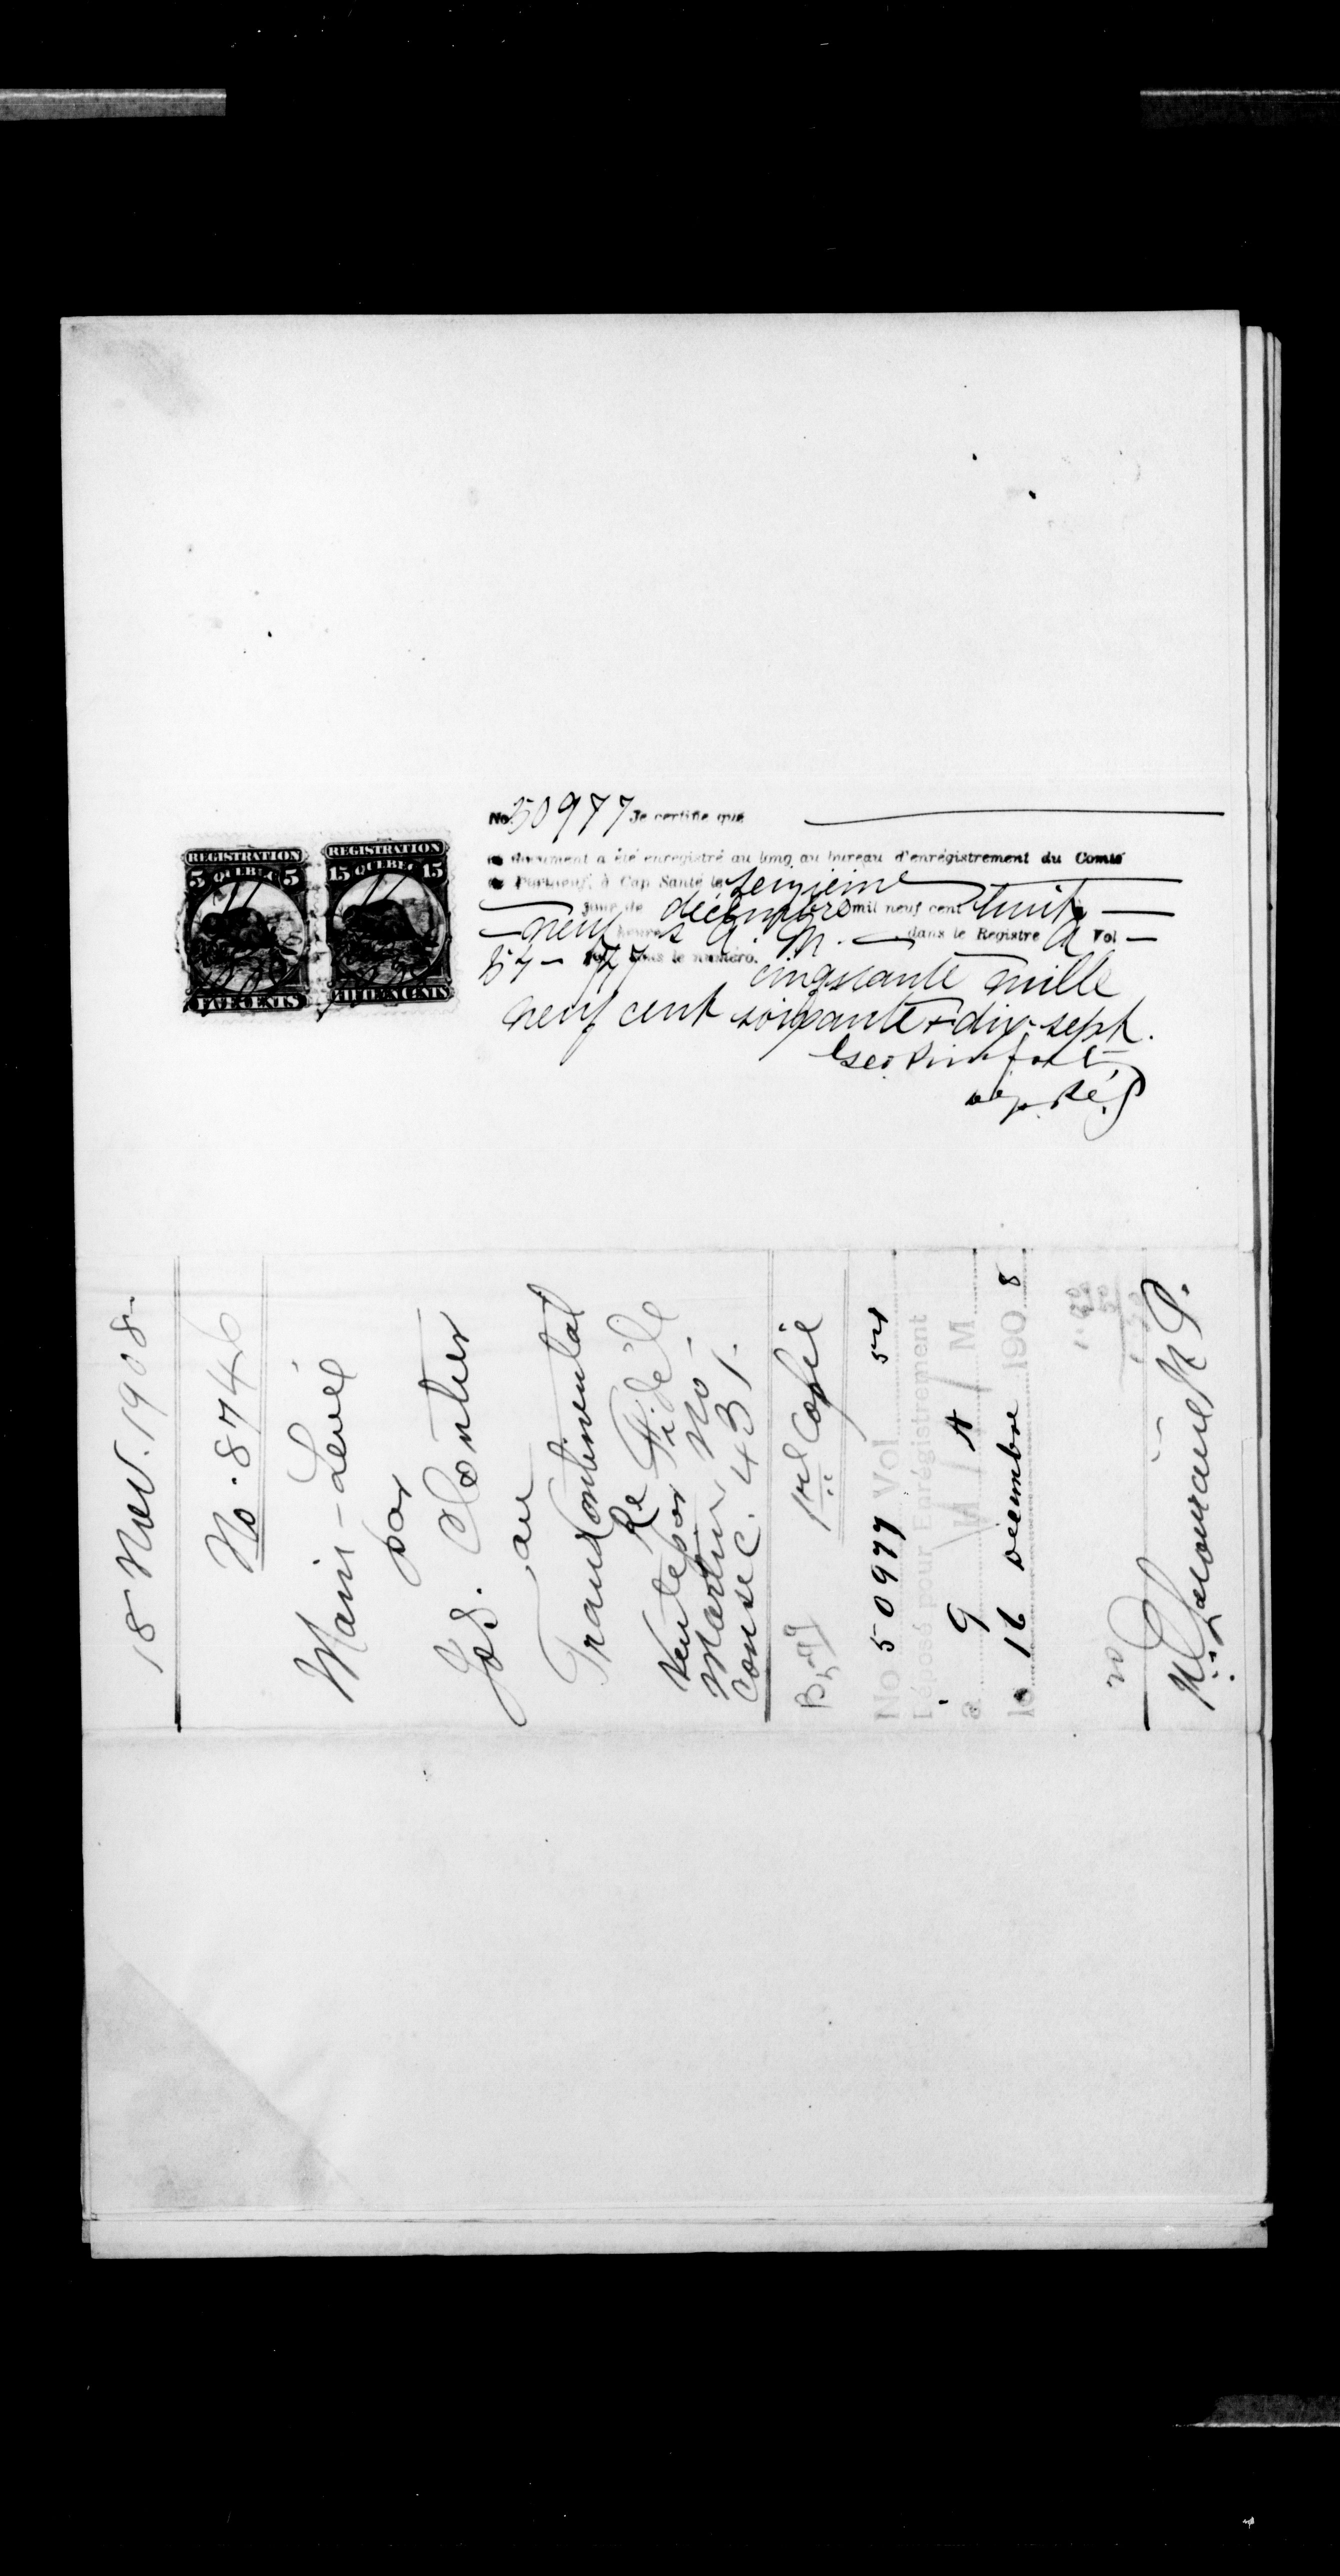 No 50977 Je certifie que
ce document a été enregistré au long au bureau d'enrégistrement du Comté
de Portneuf, à Cap Santé le seizième
jour de décembre mil neuf cent huit
neuf heures A. M. dans le Registre A Vol
sous le numéro. cinquante mille
neuf cent soixante & dix-sept.
Dep. Rég
REGISTRATION
5 QUEBEC 5
FIVE CENTS
REGISTRATION
15 QUEBEC 15
FIFTEEN CENTS
18 Nov. 1908
No. 8746
Main-Levée
par
Jos. Cloutier
au
Transcontinental
Re Fidèle
Vente par No
Martin 431.
Cons C.
1re Copie
No 50977 Vol 54
Déposé pour Enrégistrement
a 9 H / A / M
le 16 décembre 1908
N. P.